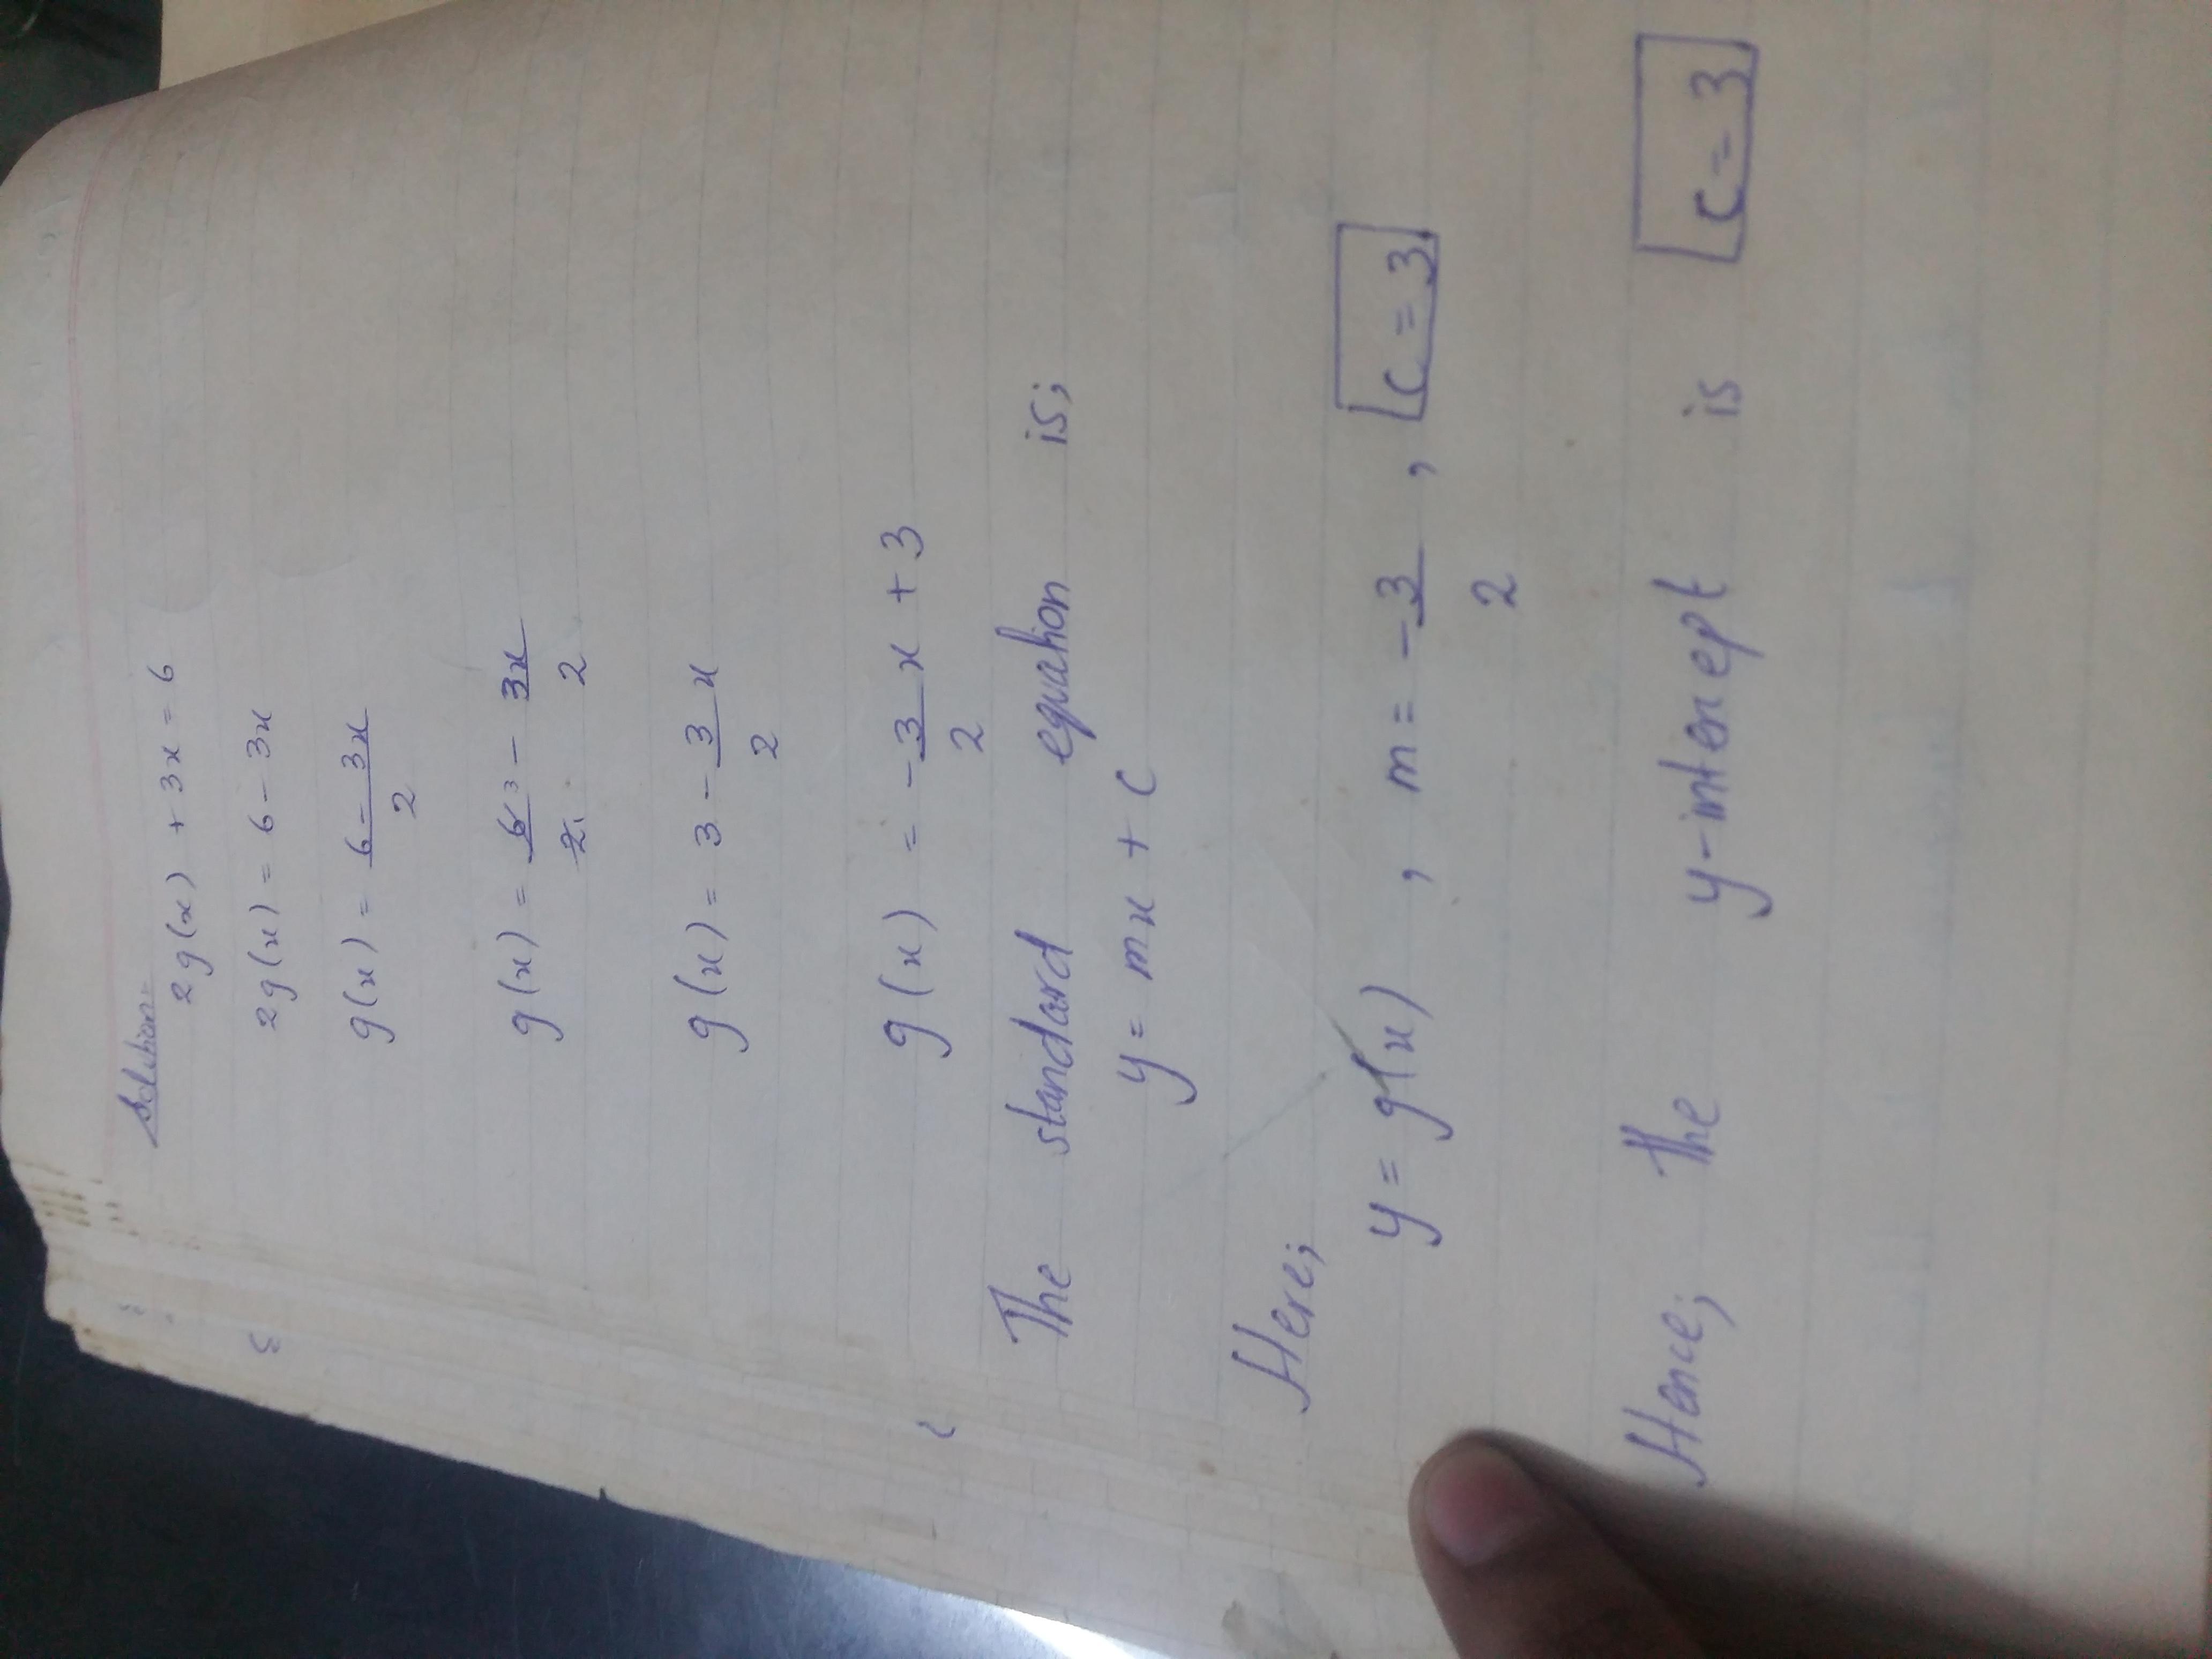 Solution:-
2g(x) + 3x = 6
2g(x) = 6 - 3x
g(x) = (6 - 3x)/2
g(x) = 6/2 3 - 3x/2
g(x) = 3 - 3/2 x
g(x) = -3/2 x + 3
The standard equation is;
y = mx + c
Here;
y = g(x) , m = -3/2 , c = 3
Hence; The y-intercept is c = 3